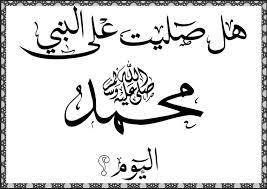 هل صليت على النبي
محمد صلى الله عليه وسلم
اليوم ؟